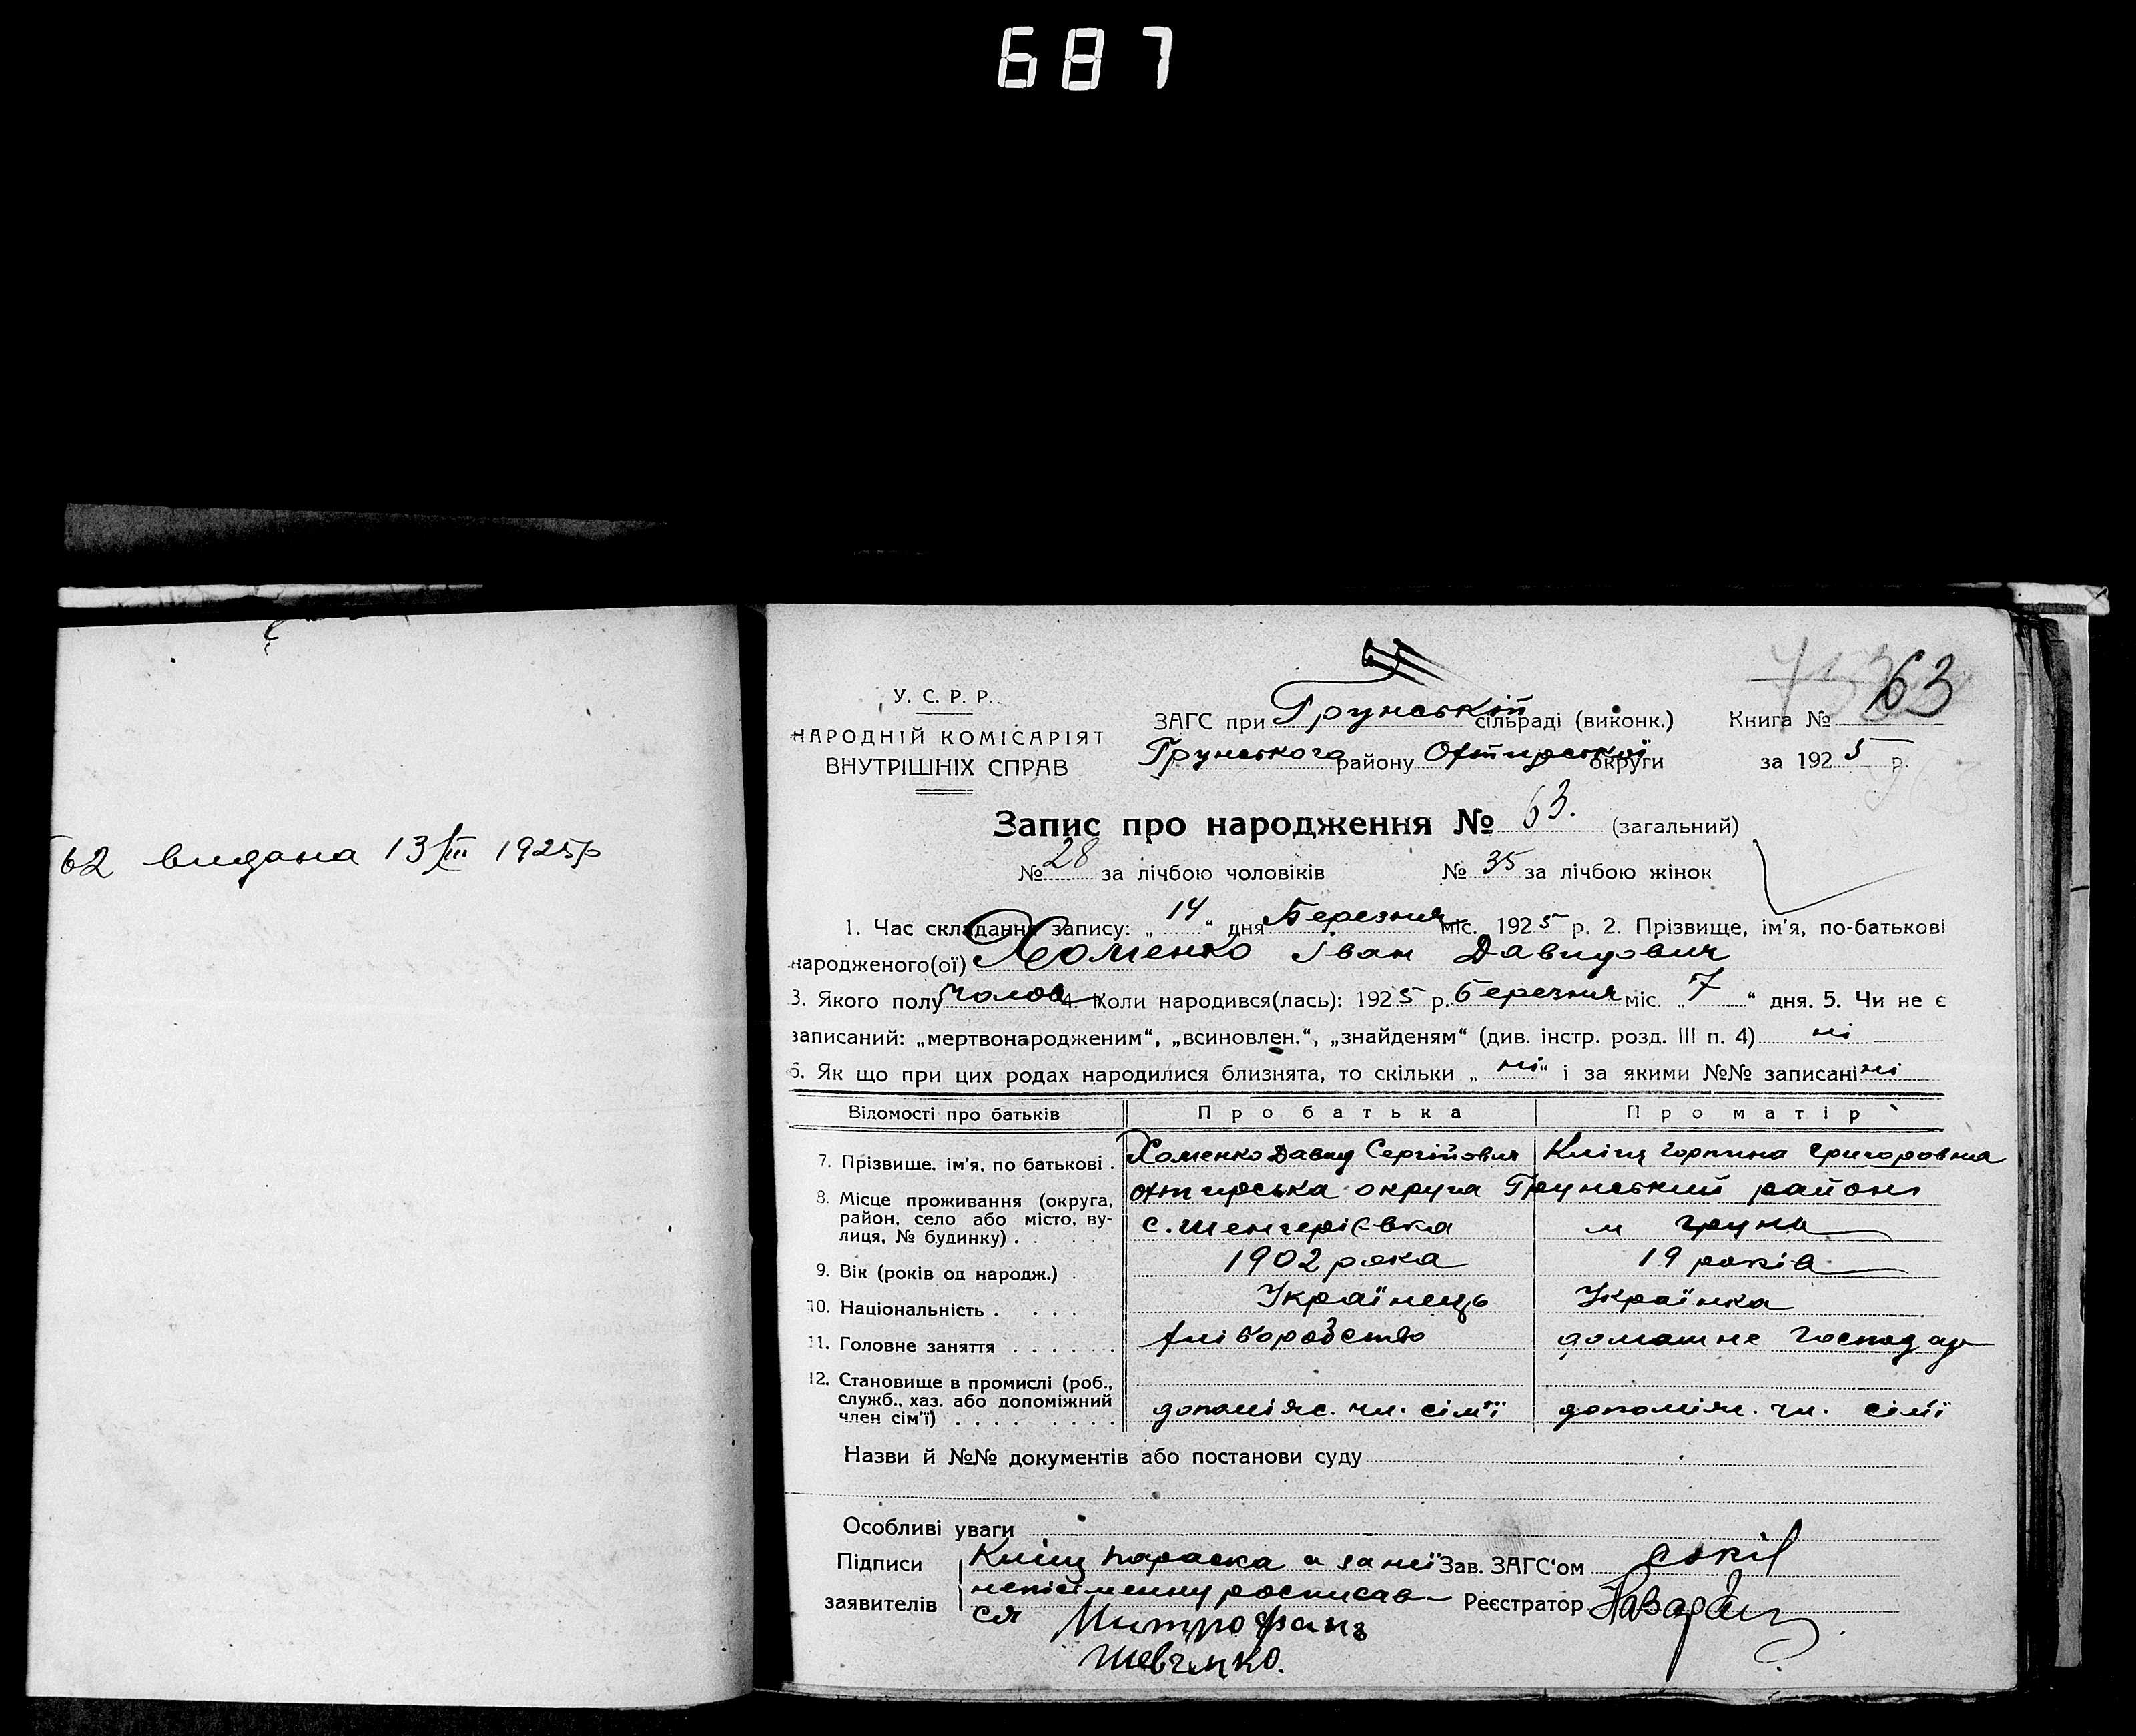 687
62 видана 13/III 1925р
63
У. С. Р. Р.
НАРОДНІЙ КОМІСАРІЯТ
ВНУТРІШНІХ СПРАВ
ЗАГС при Грунській сільраді (виконк.) Книга №
Грунського району Охтирської округи за 1925 р.
Запис про народження № 63. (загальний)
№ 28 за лічбою чоловіків № 35 за лічбою жінок
1. Час складання запису: „14“ дня Березня міс. 1925 р. 2. Прізвище, ім'я, по-батькові
народженого(ої) Хоменко Іван Давидович
3. Якого полу чолов 4. Коли народився(лась): 1925 р. березня міс. „7“ дня. 5. Чи не є
записаний: „мертвонародженим“, „всиновлен.“, „знайденям“ (див. інстр. розд. III п. 4) ні
6. Як що при цих родах народилися близнята, то скільки „ні“ і за якими №№ записані ні
Відомості про батьків Про батька Про матір
7. Прізвище, ім'я, по батькові . Хоменко Давид Сергійович Кліщ Горпина Григоровна
8. Місце проживання (округа, район, село або місто, вулиця, № будинку) . Охтирська округа Грунський район
с. Шенгеріївка м Грунь
9. Вік (років од народж.) . 1902 рока 19 років
10. Національність . . . . Українець Українка
11. Головне заняття . . . . . . хліборобство домашнє господар
12. Становище в промислі (роб.,
служб., хаз. або допоміжний
член сім'ї) . . . . . . . . . допоміж. чл. сім'ї допоміж. чл. сім'ї
Назви й №№ документів або постанови суду
Особливі уваги
Підписи заявителів Кліщ Параска а за неї Зав. ЗАГС'ом Сокіл
неписьменну росписав- Реєстратор
ся Митрофанъ
Шевченко.